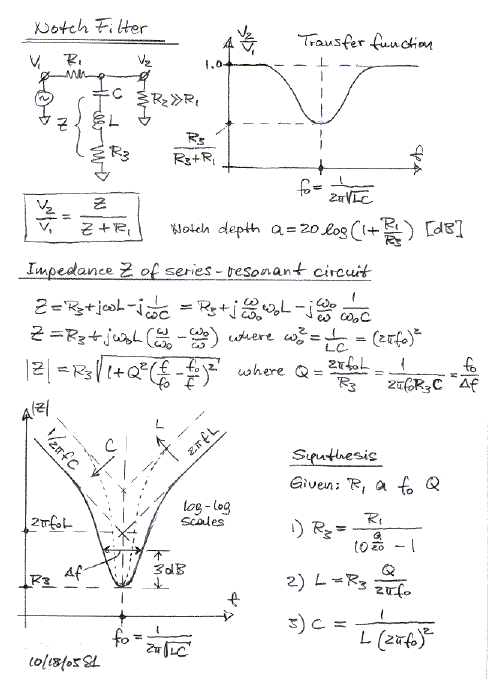 Notch Filter
V₁ R₁ V₂
C
R₂≫R₁
Z
L
R₃
V₂/V₁
Transfer function
1.0
R₃/(R₃+R₁)
f
f₀ = 1/(2π√LC)
V₂/V₁ = Z/(Z + R₁)
Notch depth a = 20 log (1 + R₁/R₃) [dB]
Impedance Z of series-resonant circuit
Z = R₃ + jωL - j 1/(ωC) = R₃ + j ω/ω₀ ω₀L - j ω₀/ω 1/(ω₀C)
Z = R₃ + jω₀L (ω/ω₀ - ω₀/ω) where ω₀² = 1/LC = (2πf₀)²
|Z| = R₃ √(1 + Q² (f/f₀ - f₀/f)²) where Q = 2πf₀L/R₃ = 1/(2πf₀R₃C) = f₀/Δf
|Z|
1/2πfC
C
L
2πfL
log-log
scales
2πf₀L
Δf
3dB
R₃
f
f₀ = 1/(2π√LC)
10/18/05 SL
Synthesis
Given: R₁ a f₀ Q
1) R₃ = R₁/(10^(a/20) - 1)
2) L = R₃ Q/(2πf₀)
3) C = 1/(L (2πf₀)²)